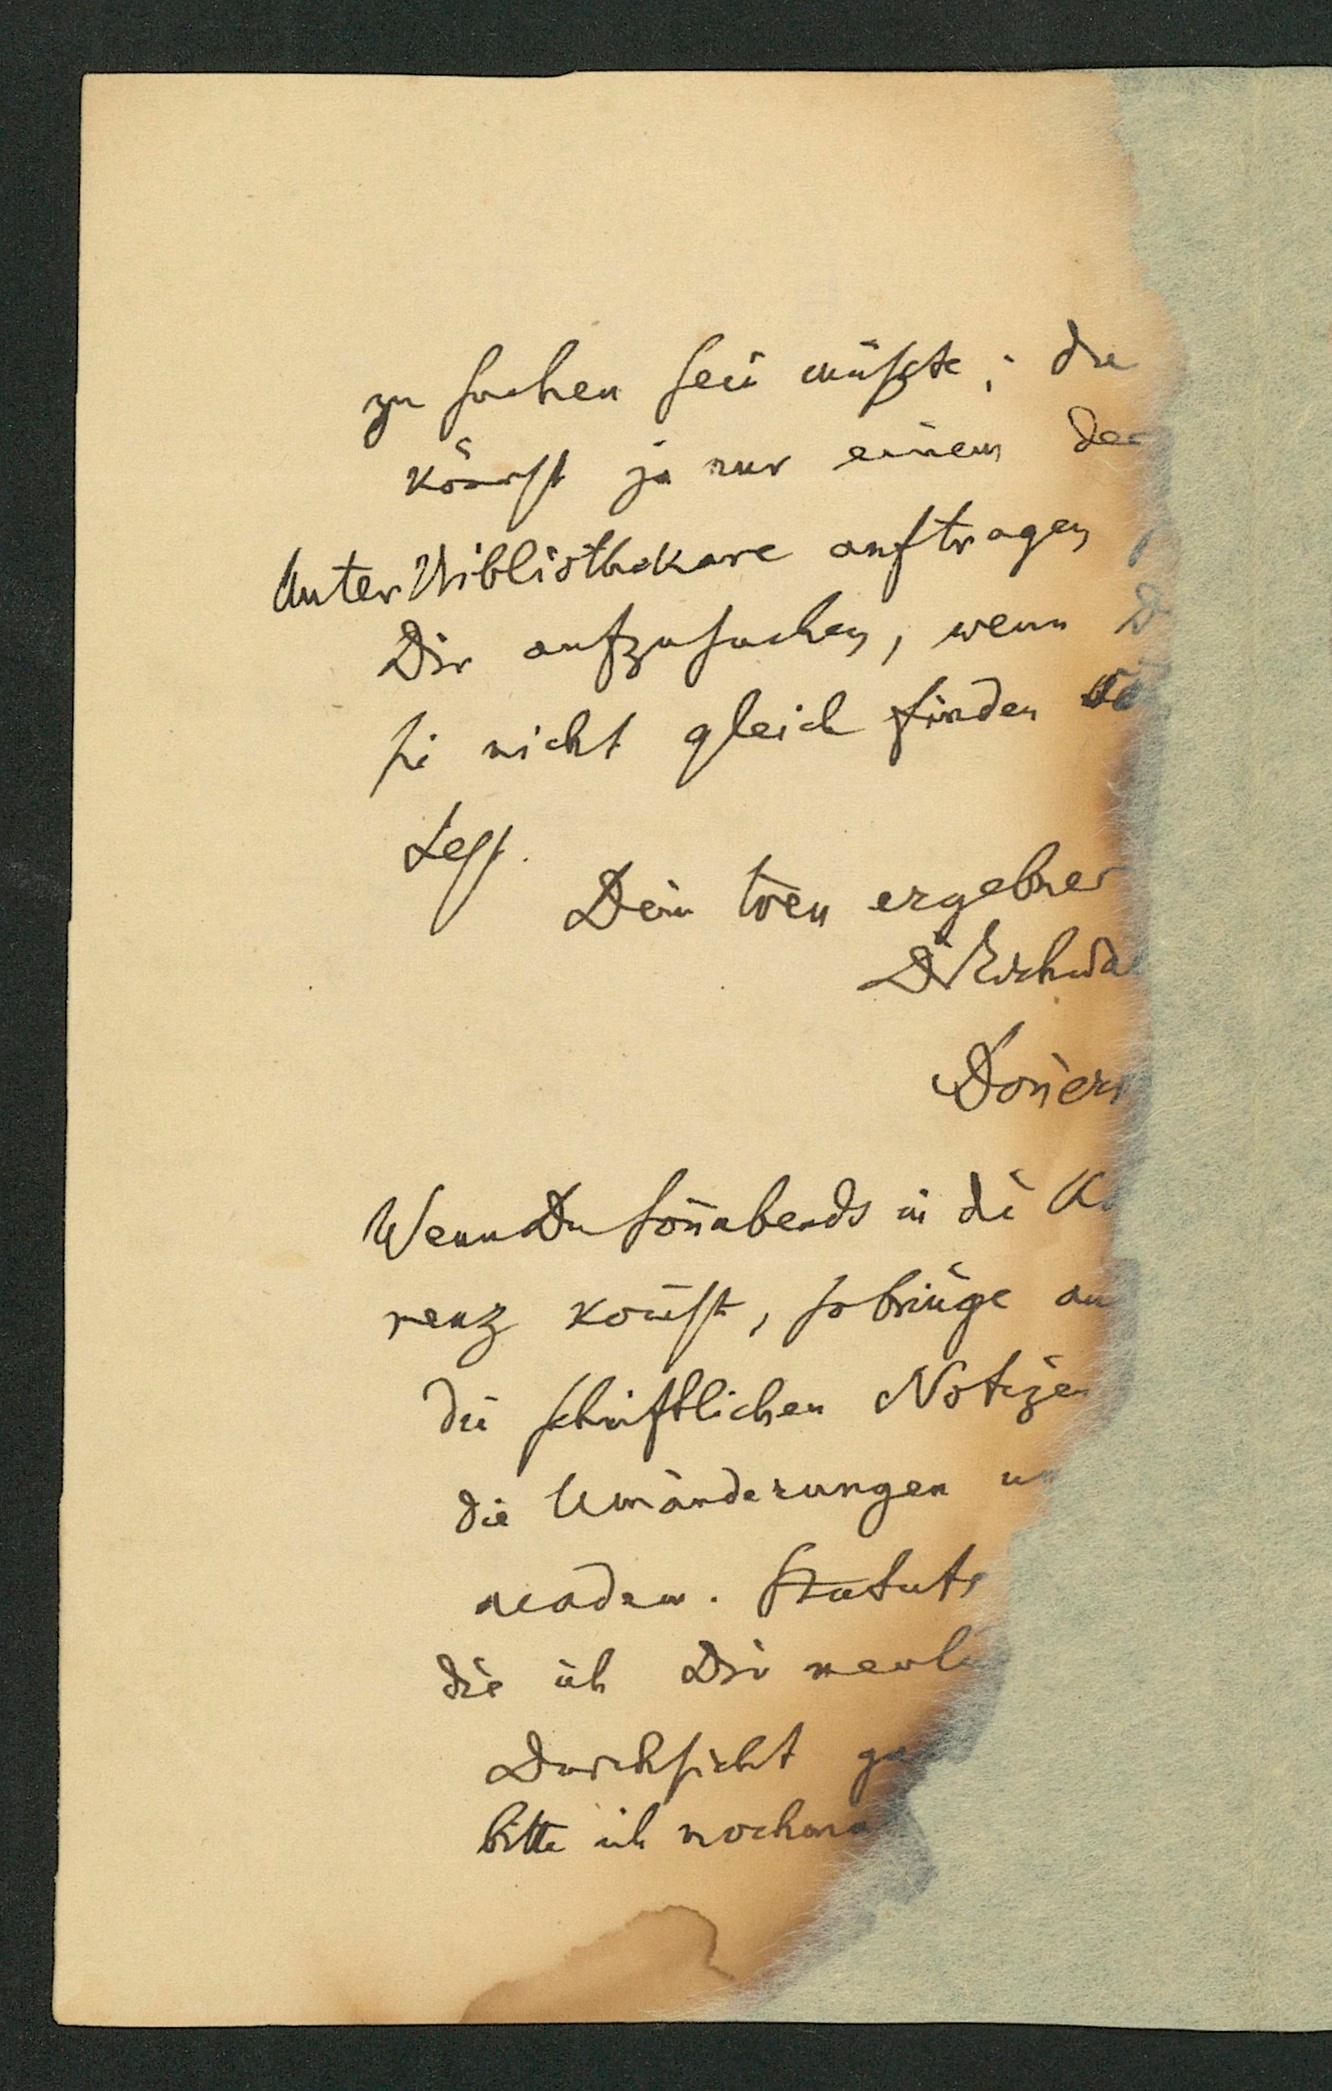 zu suchen sein müßte; du
könnst ja nur einem der
Unter Bibliothekare auftragen
Dir aufzusuchen, wenn D
sie nicht gleich finden
Lest.
Dein treu ergebner
Dr Eichwa
Doñers
Wenn Du soñabends in die Ko
renz kom̃st, so bringe au
die schriftlichen Notizen
die Umänderungen un
academ. Statute
die ich Dir neuli
Durchsicht ge
bitte ich nochma